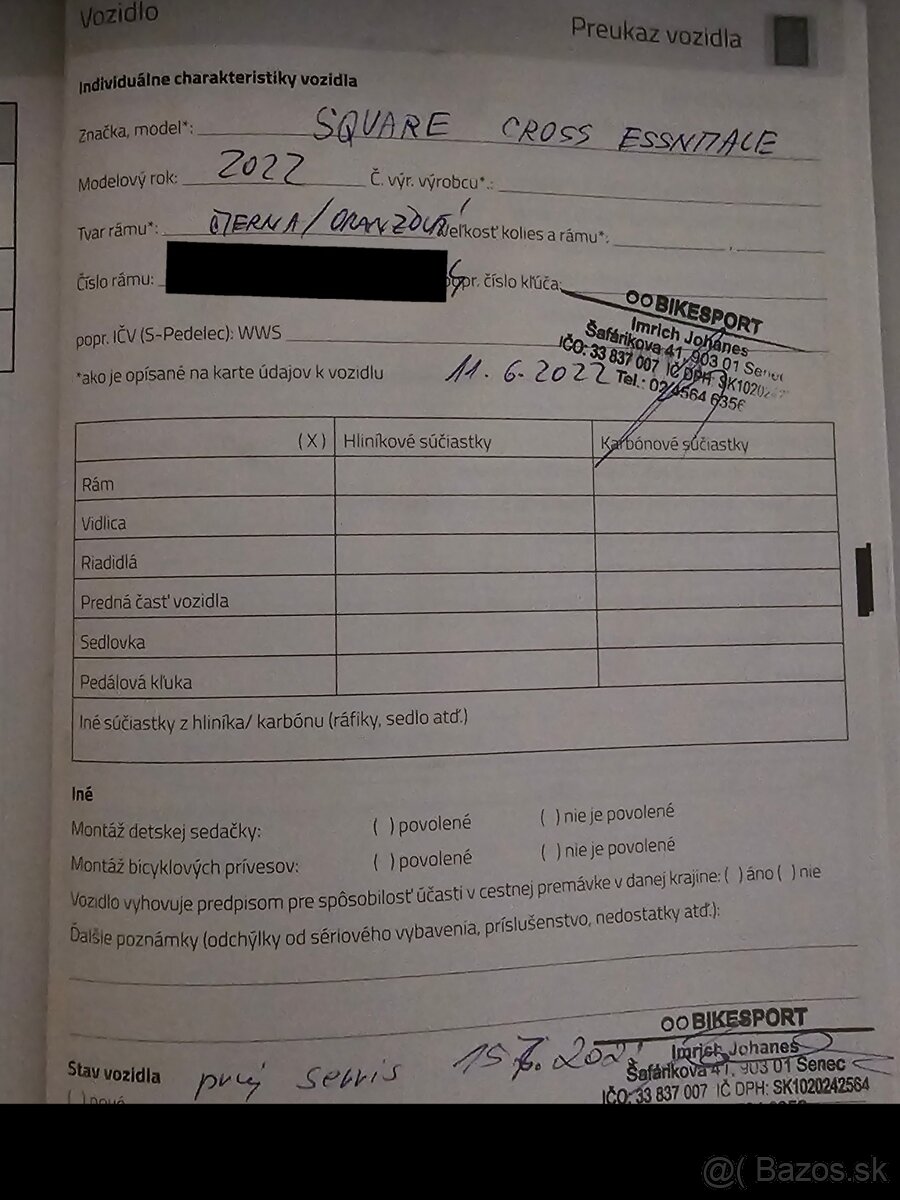 Vozidlo
Preukaz vozidla
Individuálne charakteristiky vozidla
Značka, model*: SQUARE CROSS ESSNTIALE
Modelový rok: 2022 Č. výr. výrobcu*.:
Tvar rámu*: ČIERNA/ORANŽOVÁ Veľkosť kolies a rámu*: ,
Číslo rámu: popr. číslo kľúča:
BIKESPORT
Imrich Johanes
Šafárikova 41, 903 01 Senec
IČO: 33 837 007 IČ DPH: SK1020242
Tel.: 02/4564 6356
popr. IČV (S-Pedelec): WWS
*ako je opísané na karte údajov k vozidlu 11. 6. 2022
(X) Hliníkové súčiastky Karbónové súčiastky
Rám
Vidlica
Riadidlá
Predná časť vozidla
Sedlovka
Pedálová kľuka
Iné súčiastky z hliníka/ karbónu (ráfiky, sedlo atď.)
Iné
Montáž detskej sedačky: ( ) povolené ( ) nie je povolené
Montáž bicyklových prívesov: ( ) povolené ( ) nie je povolené
Vozidlo vyhovuje predpisom pre spôsobilosť účasti v cestnej premávke v danej krajine: ( ) áno ( ) nie
Ďalšie poznámky (odchýlky od sériového vybavenia, príslušenstvo, nedostatky atď.):
BIKESPORT
Imrich Johanes
Šafárikova 41, 903 01 Senec
IČO: 33 837 007 IČ DPH: SK1020242564
Stav vozidla prvý servis
( ) nové
@( Bazos.sk